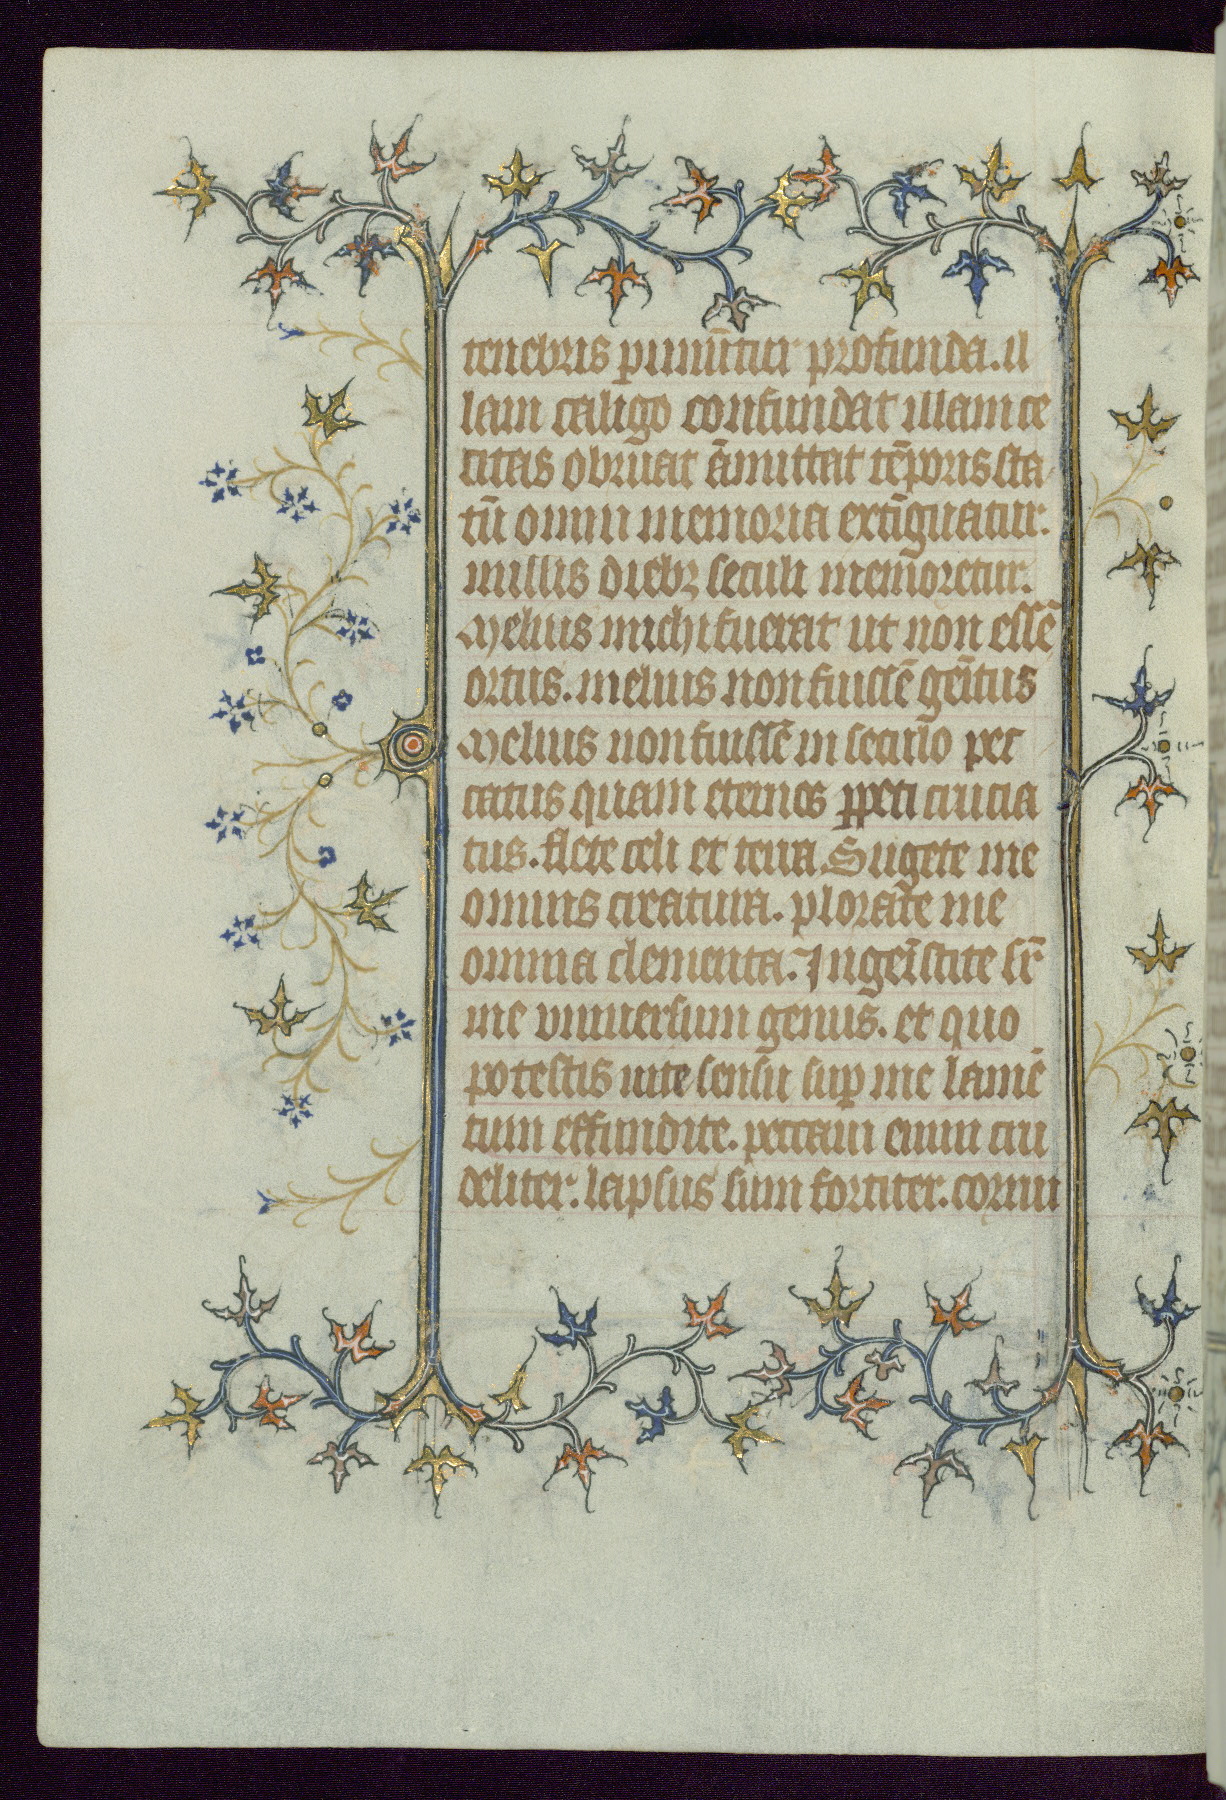 tenebris puniu̅tur profunda. il
lam caligo confundat illam ce
citas obruat a̅mittat te̅poris sta
tu̅ omni memoria exti̅guatur.
nullis diebꝫ seculi mem̅oretur.
Melius michi fuerat ut non esse̅
ortus. melius non fuisse̅ gei̅tus
Melius non fuisse̅ in seculo pec
catus quam eternos ꝑpeti crucia
tus. flete celi et terra. Sugete me
omnis creatura. plorat̅e me
omnia elementa. Ingei̅scite sr̅
me vniuersum genus. et quo
potestis uite sensu suꝑ me lame̅
tum effundite. peccaui enim cru
deliter. lapsus sum fortiter. corrui